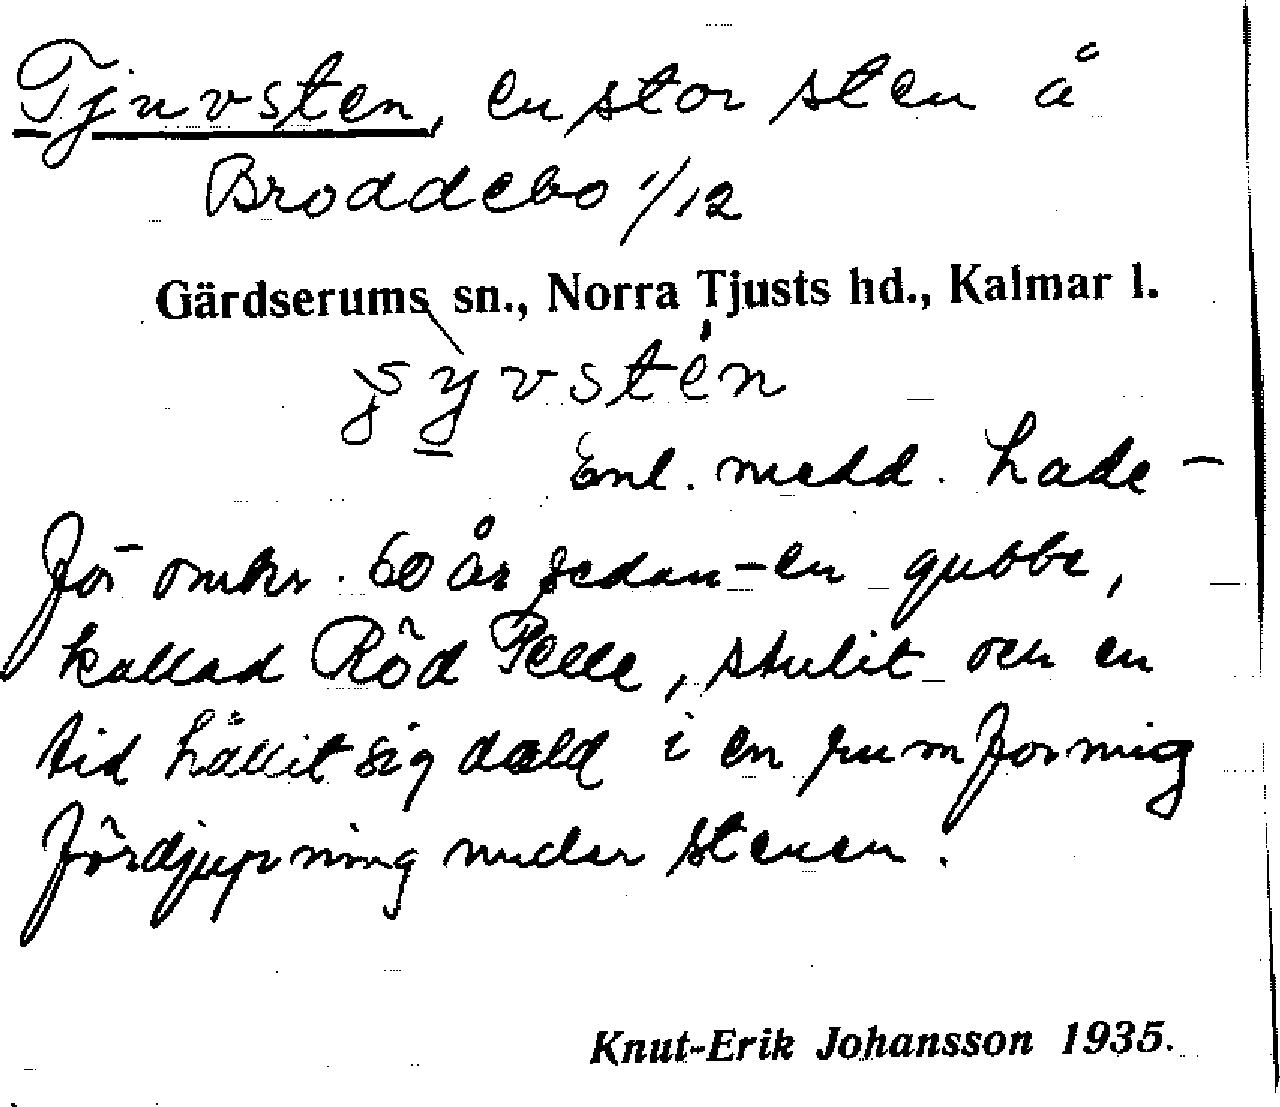 Tjuvsten, en stor sten å
Broddebo 1/12
Gärdserums sn., Norra Tjusts hd., Kalmar l.
Enl. medd. hade –
för omkr. 60 år sedan – en gubbe,
kallad Röd Pelle, stulit och en
tid hållit sig dold i en rumformig
fördjupning under stenen.
Knut-Erik Johansson 1935.